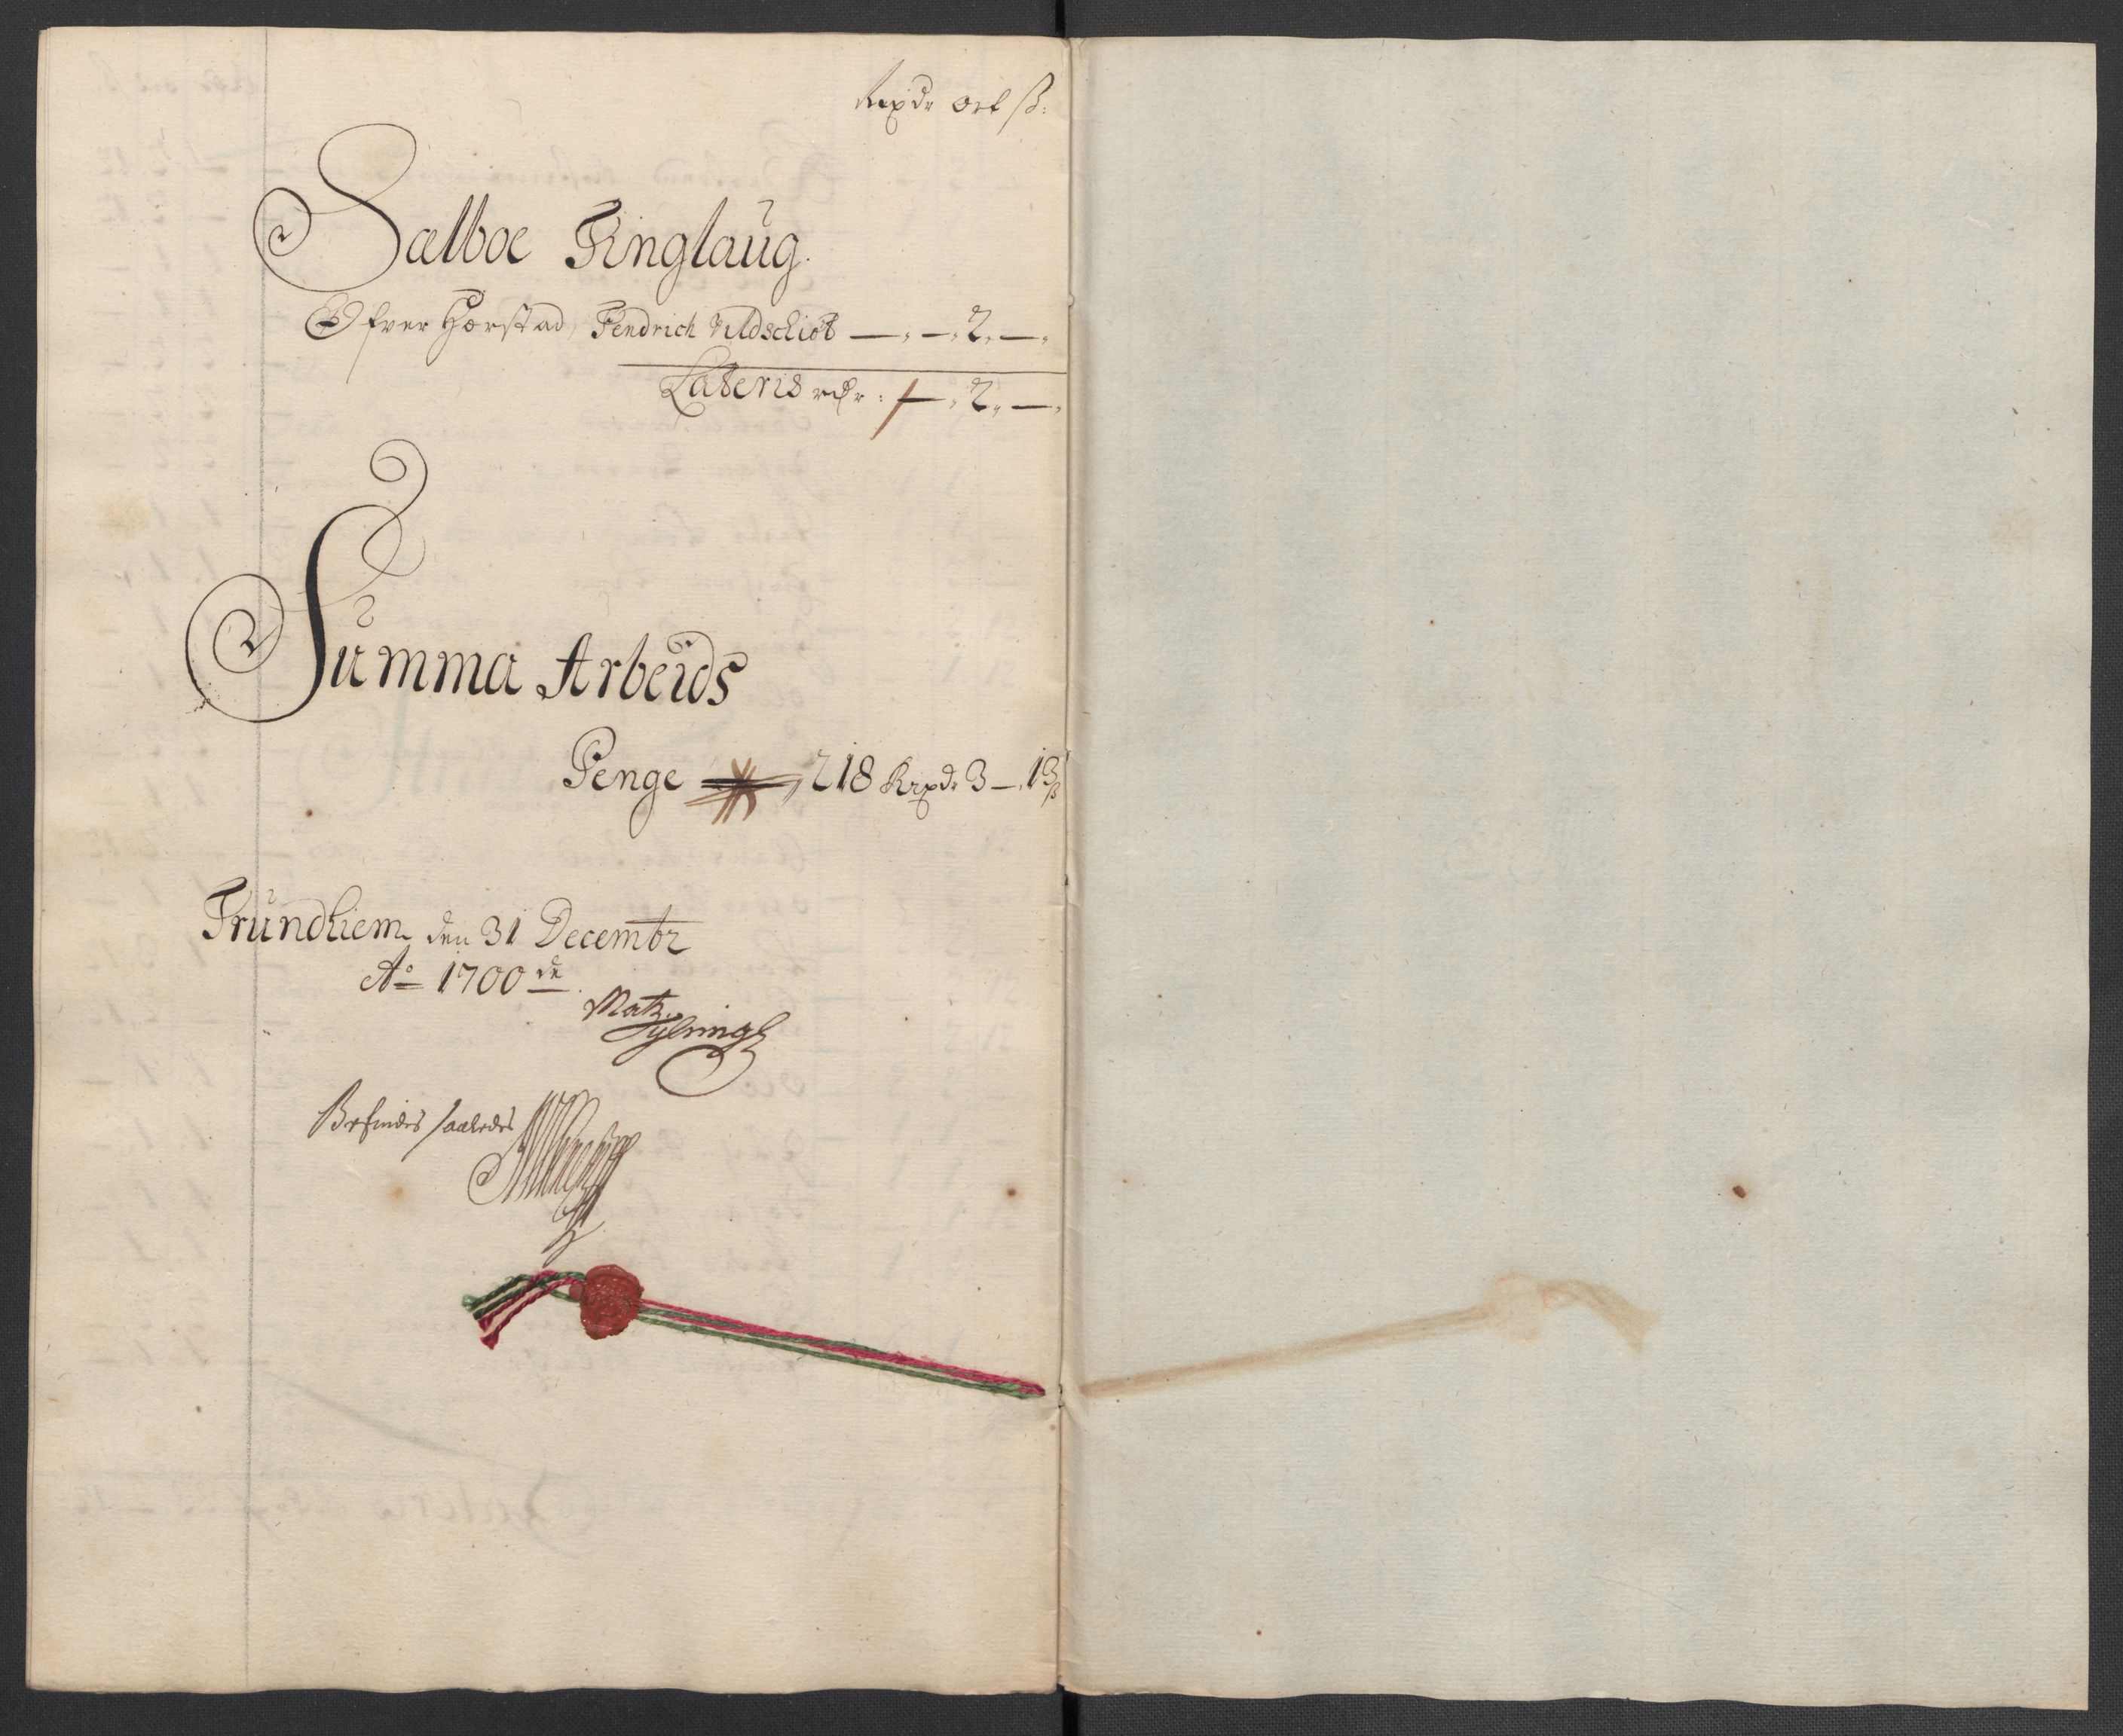 Rixdr ort ß:
Sælboe Tinglaug.
Øfver Hørstad, Fendrich Vildschiøt —,—,2,—,
Lateris rdr: —,2,—,
Summa Arbeids
Penge 218 Rixdr 3 —, 13 ß
Trundhiem den 31 Decembr
Ao 1700 de.
Matz
Befindes saaledes